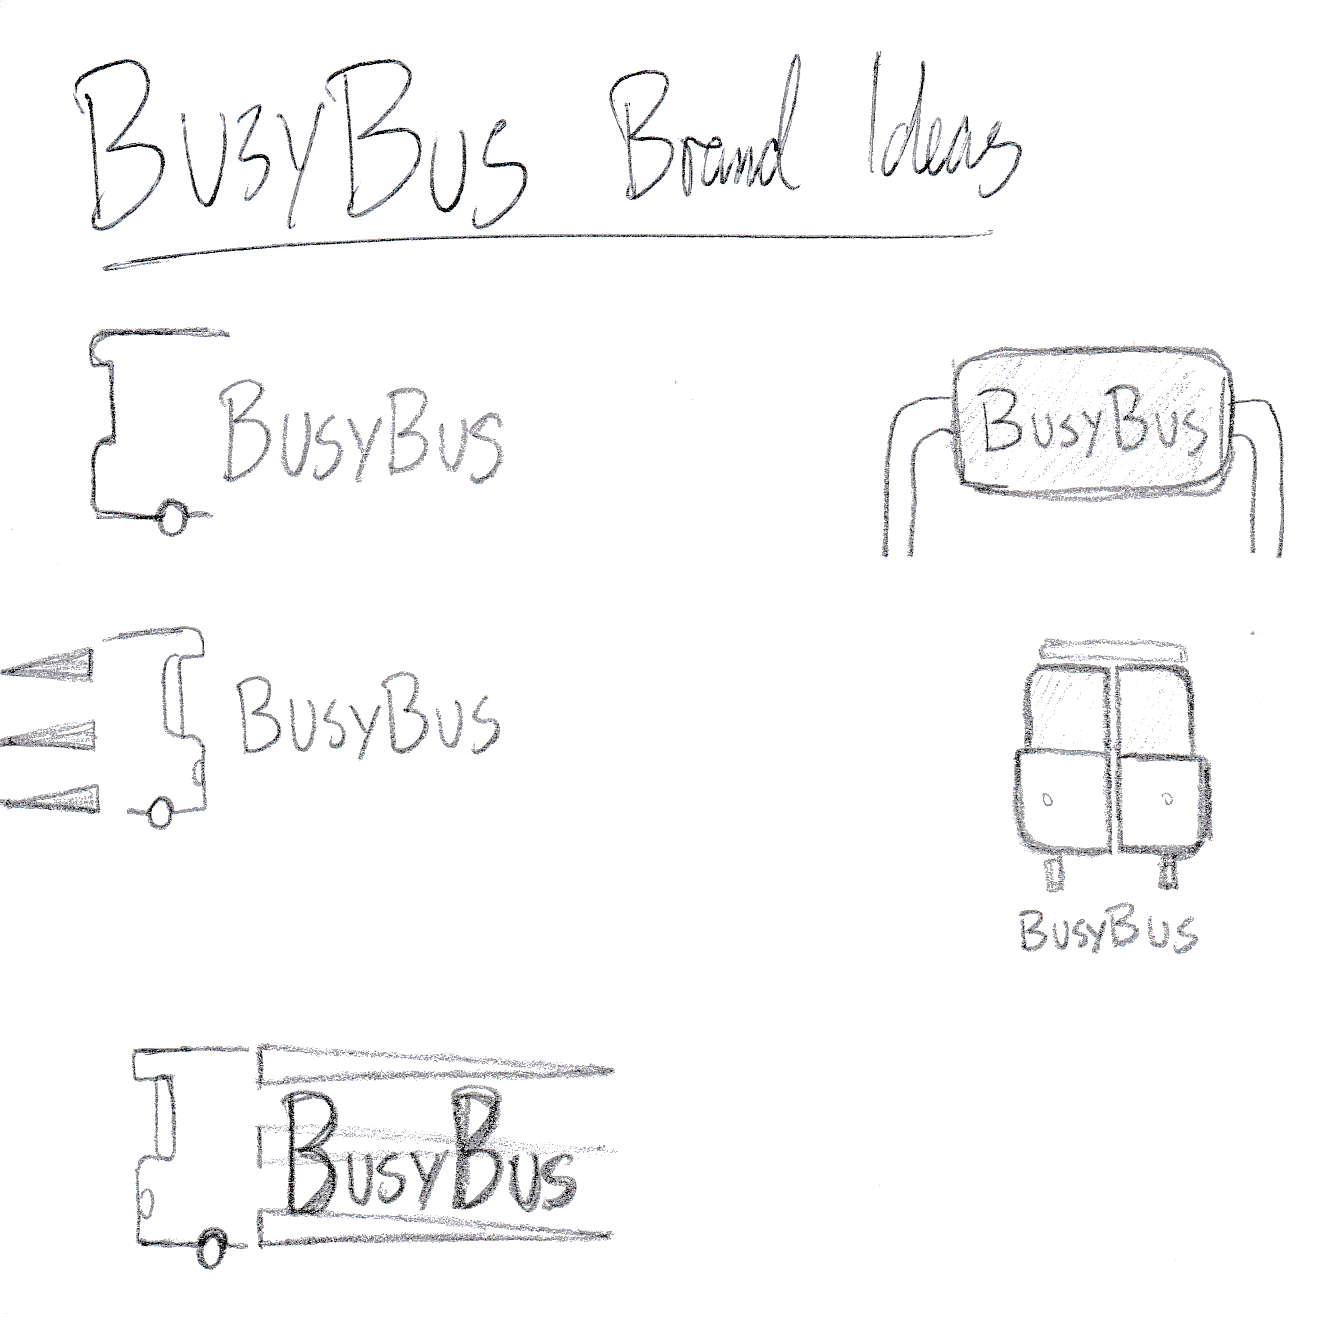 BusyBus Brand Ideas
BusyBus
BusyBus
BusyBus
BusyBus
BusyBus